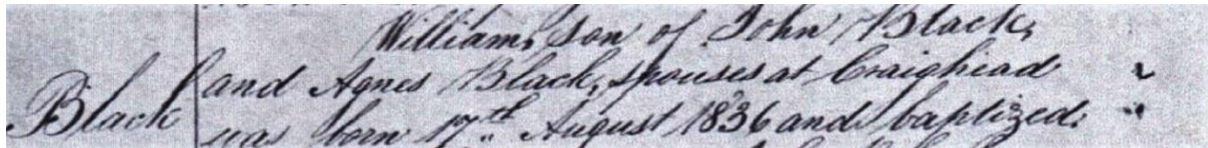 William, son of John Black,
Black and Agnes Black, spouses at Craighead
was born 17th August 1836 and baptized